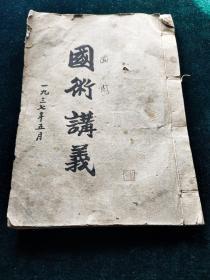 國術講義
一九三七年五月